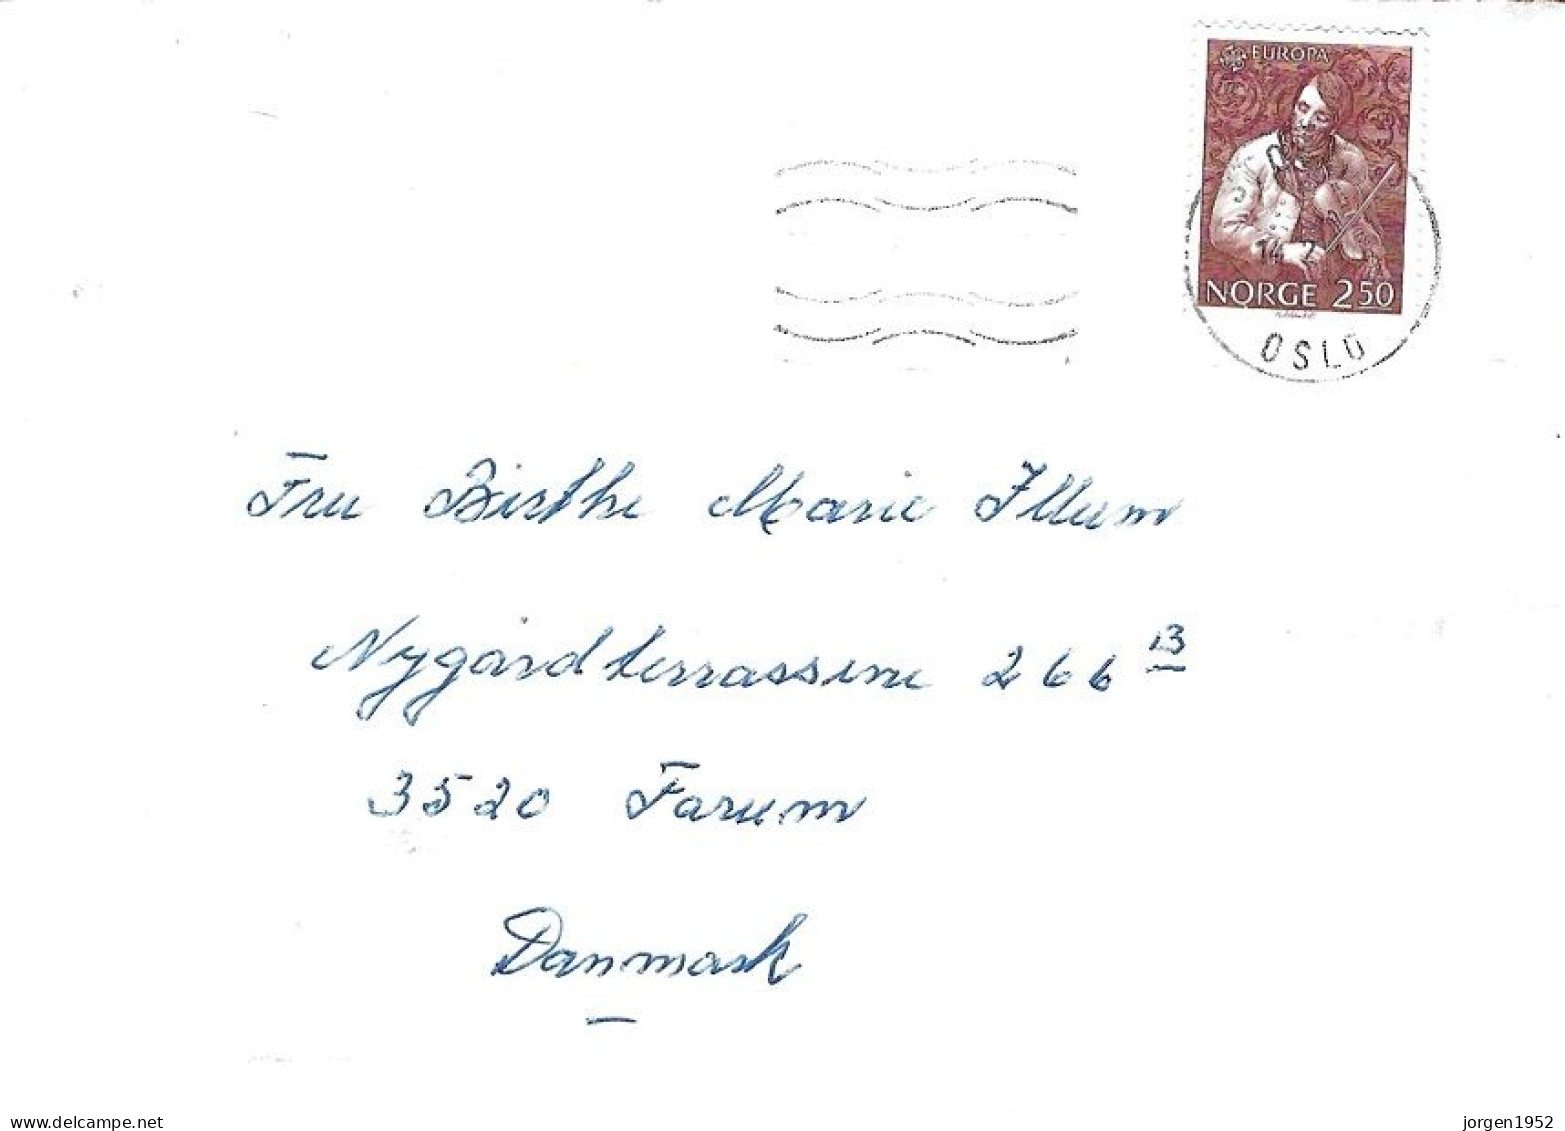 EUROPA
14 2
NORGE 2 50
OSLO
Fru Birthe Marie Illum
Nygårdterrassene 266 B
3520 Farum
Danmark
www.delcampe.net
jorgen1952